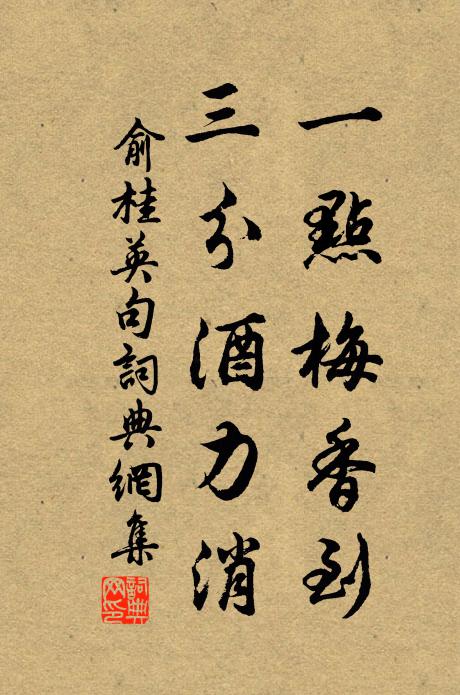 一點梅香到
三分酒力消
俞桂英句詞典網集
詞典網印